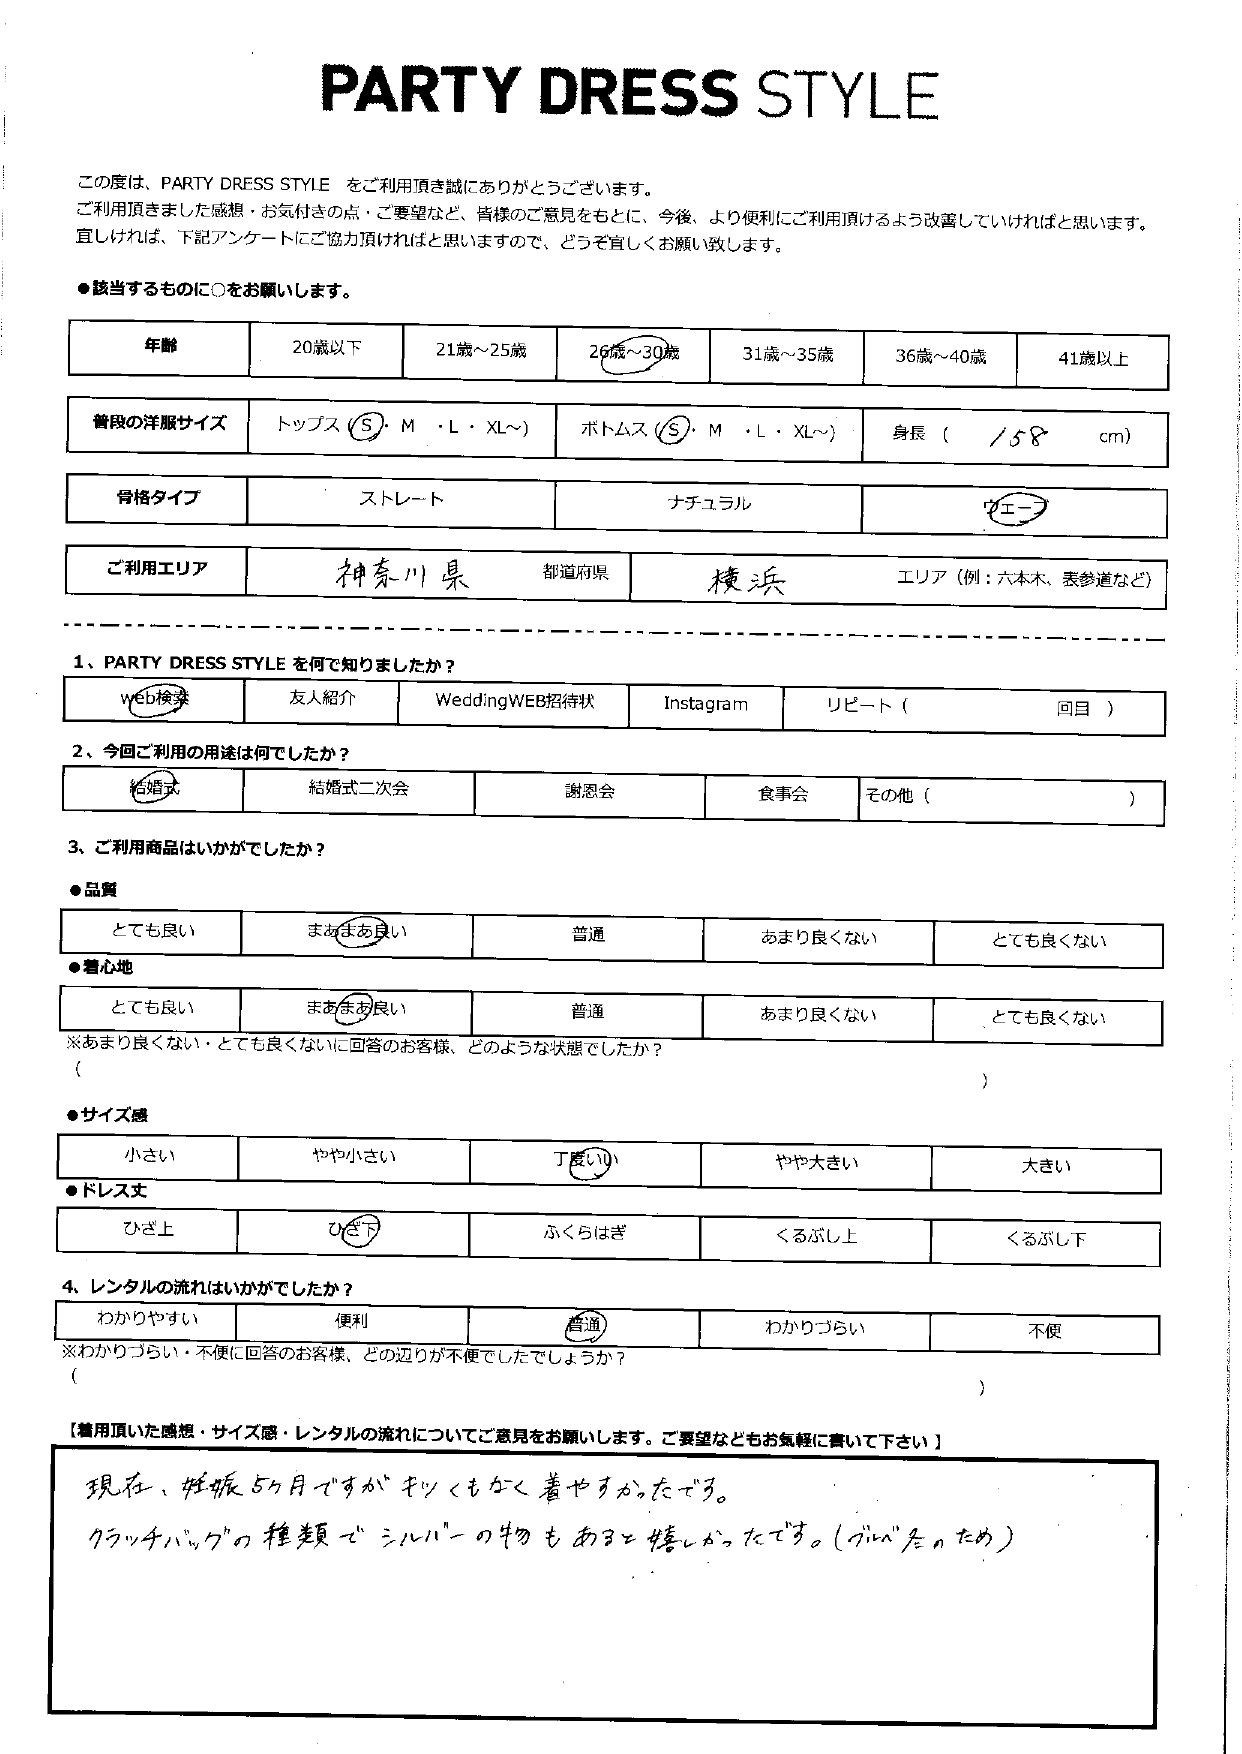 PARTY DRESS STYLE
この度は、PARTY DRESS STYLE をご利用頂き誠にありがとうございます。
ご利用頂きました感想・お気付きの点・ご要望など、皆様のご意見をもとに、今後、より便利にご利用頂けるよう改善していければと思います。
宜しければ、下記アンケートにご協力頂ければと思いますので、どうぞ宜しくお願い致します。
●該当するものに○をお願いします。
年齢 20歳以下 21歳～25歳 26歳～30歳 31歳～35歳 36歳～40歳 41歳以上
普段の洋服サイズ トップス（S・ M ・L ・ XL～） ボトムス（S・ M ・L ・ XL～） 身長（ 158 cm）
骨格タイプ ストレート ナチュラル ウェーブ
ご利用エリア 神奈川県 都道府県 横浜 エリア（例：六本木、表参道など）
1、PARTY DRESS STYLE を何で知りましたか？
web検索 友人紹介 WeddingWEB招待状 Instagram リピート（ 回目 ）
2、今回ご利用の用途は何でしたか？
結婚式 結婚式二次会 謝恩会 食事会 その他（ ）
3、ご利用商品はいかがでしたか？
●品質
とても良い まあまあ良い 普通 あまり良くない とても良くない
●着心地
とても良い まあまあ良い 普通 あまり良くない とても良くない
※あまり良くない・とても良くないに回答のお客様、どのような状態でしたか？
（ ）
●サイズ感
小さい やや小さい 丁度いい やや大きい 大きい
●ドレス丈
ひざ上 ひざ下 ふくらはぎ くるぶし上 くるぶし下
4、レンタルの流れはいかがでしたか？
わかりやすい 便利 普通 わかりづらい 不便
※わかりづらい・不便に回答のお客様、どの辺りが不便でしたでしょうか？
（ ）
【着用頂いた感想・サイズ感・レンタルの流れについてご意見をお願いします。ご要望などもお気軽に書いて下さい 】
現在、妊娠5ヶ月ですがキツくもなく着やすかったです。
クラッチバッグの種類でシルバーの物もあると嬉しかったです。（ブルベ冬のため）